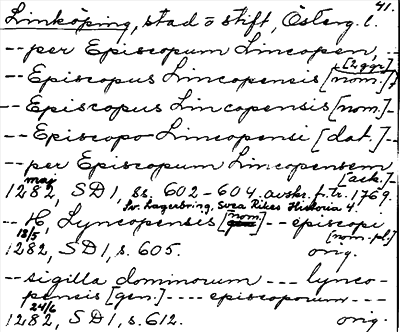 41.
Linköping, stad o stift, Österg. l.
-- per Episcopum Lincopen, --
[2 ggr]
-- Episcopus Lincopensis [nom.],
-- Episcopus Lincopensis [nom.] --
-- Episcopo Lincopensi [dat.] --
-- per Episcopum Lincopensem
maj [ack.] --
1282, SD 1, ss. 602-604. avskr. f. tr. 1769.
hr. Lagerbring, Svea Rikes Historia 4.
-- H, Lyncopensis [nom.] -- episcopi
18/5 [nom. pl.]
1282, SD 1, s. 605. orig.
-- sigilla dominorum --- lynco-
pensis [gen.] ---- episcoporum ---
24/6
1282, SD 1, s. 612. orig.